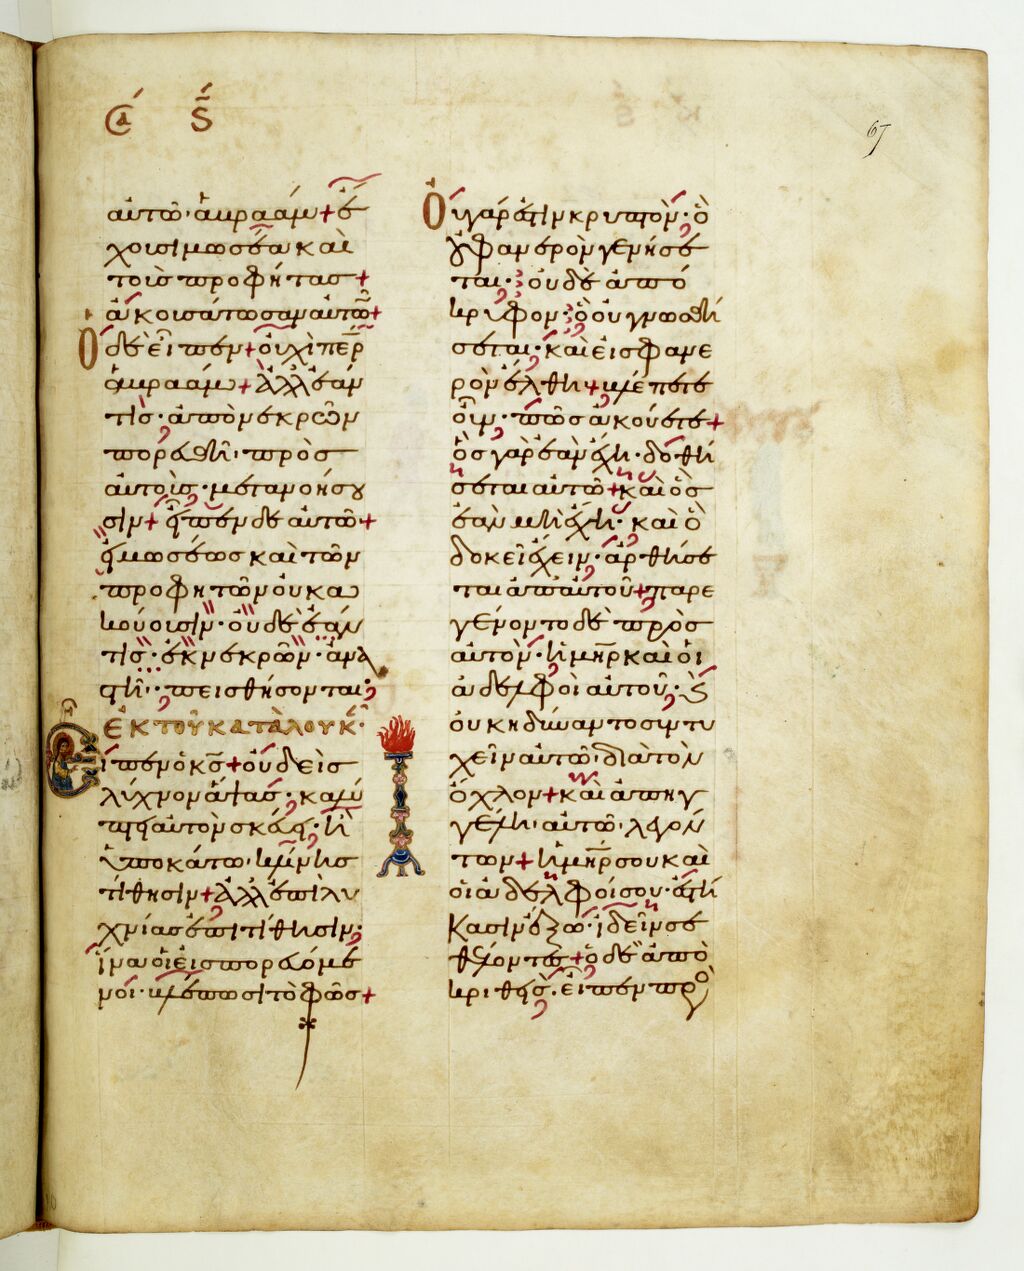 σα ϛ
67
αὐτῶ· ἀβραάμ+ ἔ
χουσι μωσέα καὶ
τοὺς προφήτας+
ἀκουσάτωσαν αὐτῶν+
Ὁ δὲ εἶπεν+ οὐχὶ περ
ἀβραάμ+ ἀλλ' ἐάν
τις· ἀπὸ νεκρῶν
πορευθῆ· πρὸς
αὐτοὺς· μετανοήσου
σιν+ εἶπεν δὲ αὐτῶ+
εἰ μωσέως καὶ τῶν
προφητῶν οὐκ ἀ
κούουσιν· οὐδὲ ἐάν
τις· ἐκ νεκρῶν· ἀνα
στῆ· πεισθήσονται
ἐκ τοῦ κατὰ λουκ·
Εἶπεν ὁ κς+ οὐδεὶς
λύχνον ἅψας· καλύ
πτει αὐτὸν σκεύει· ἢ
ὑποκάτω· κλίνης
τίθησιν+ ἀλλ' ἐπὶ λυ
χνίας ἐπιτίθησιν·
ἵνα οἱ εἰσπορευόμε
νοι· βλέπωσι τὸ φῶς+
Οὐ γάρ ἐστιν κρυπτὸν· ὃ
οὐ φανερὸν γενήσε
ται· οὐδὲ ἀπό
κρυφον· ὃ οὐ γνωσθή
σεται· καὶ εἰς φανε
ρὸν ἔλθη+ βλέπετε
οὖν· πῶς ἀκούετε+
ὃς γὰρ ἐὰν ἔχη· δοθή
σεται αὐτῶ+ καὶ ὃς
ἐὰν μὴ ἔχη· καὶ ὃ
δοκεῖ ἔχειν· ἀρθήσε
ται ἀπ' αὐτοῦ+ παρε
γένοντο δὲ πρὸς
αὐτὸν· ἡ μηρ καὶ οἱ
ἀδελφοὶ αὐτοῦ· καὶ
οὐκ ἠδύναντο συντυ
χεῖν αὐτῶ· διὰ τὸν
ὄχλον+ καὶ ἀπηγ
γέλη· αὐτῶ· λεγόν
των+ ἡ μηρ σου καὶ
οἱ ἀδελφοί σου· ἑστή
κασιν ἔξω· ἰδεῖν σε
θέλοντες+ ὁ δὲ ἀπο
κριθεὶς· εἶπεν πρὸ